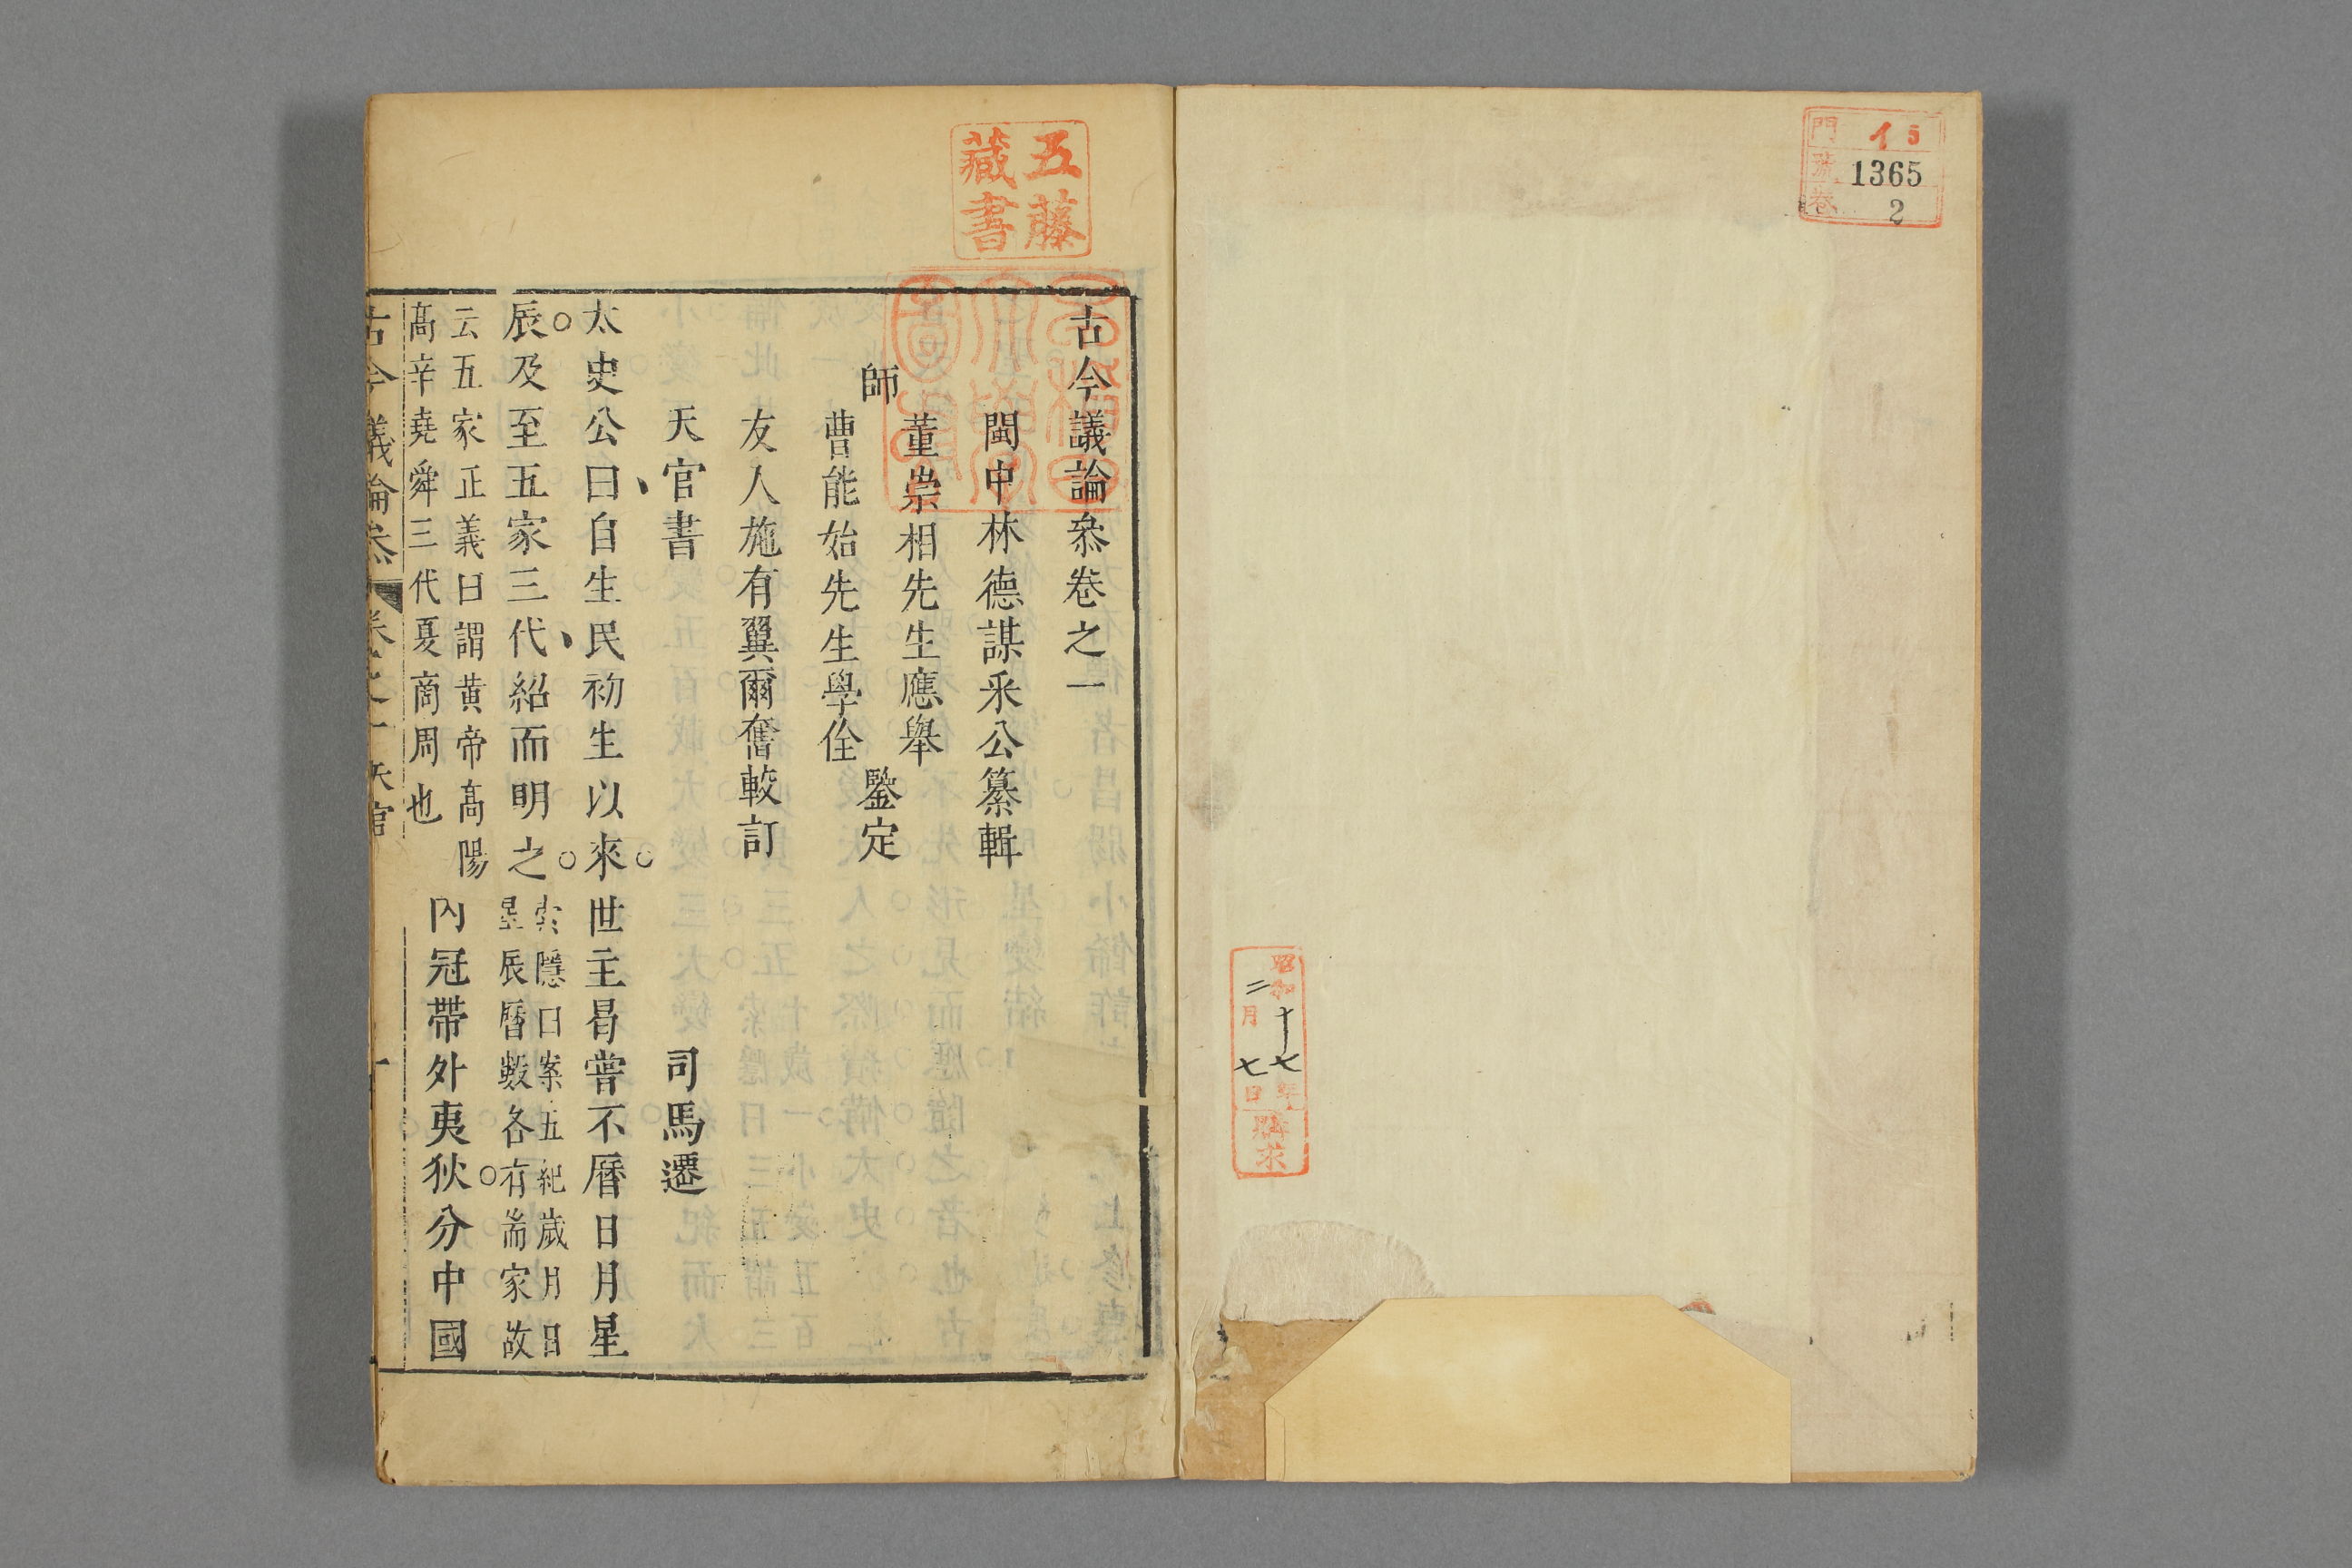 門 イ 5
號 1365
卷 2
昭和十七年
二月七日
購求
五藤
藏書
古今議論叅卷之一
閩中林德謀采公纂輯
師
董崇相先生應舉
曹能始先生學佺
鑒定
友人施有翼爾奮較訂
天官書 司馬遷
太史公曰自生民初生以來世主曷嘗不曆日月星
辰及至五家三代紹而明之
索隱曰案五紀歲月日
星辰曆數各有耑家故
云五家正義曰謂黄帝高陽
高辛堯舜三代夏商周也
內冠帶外夷狄分中國
古今議論叅 卷之一 天官 一